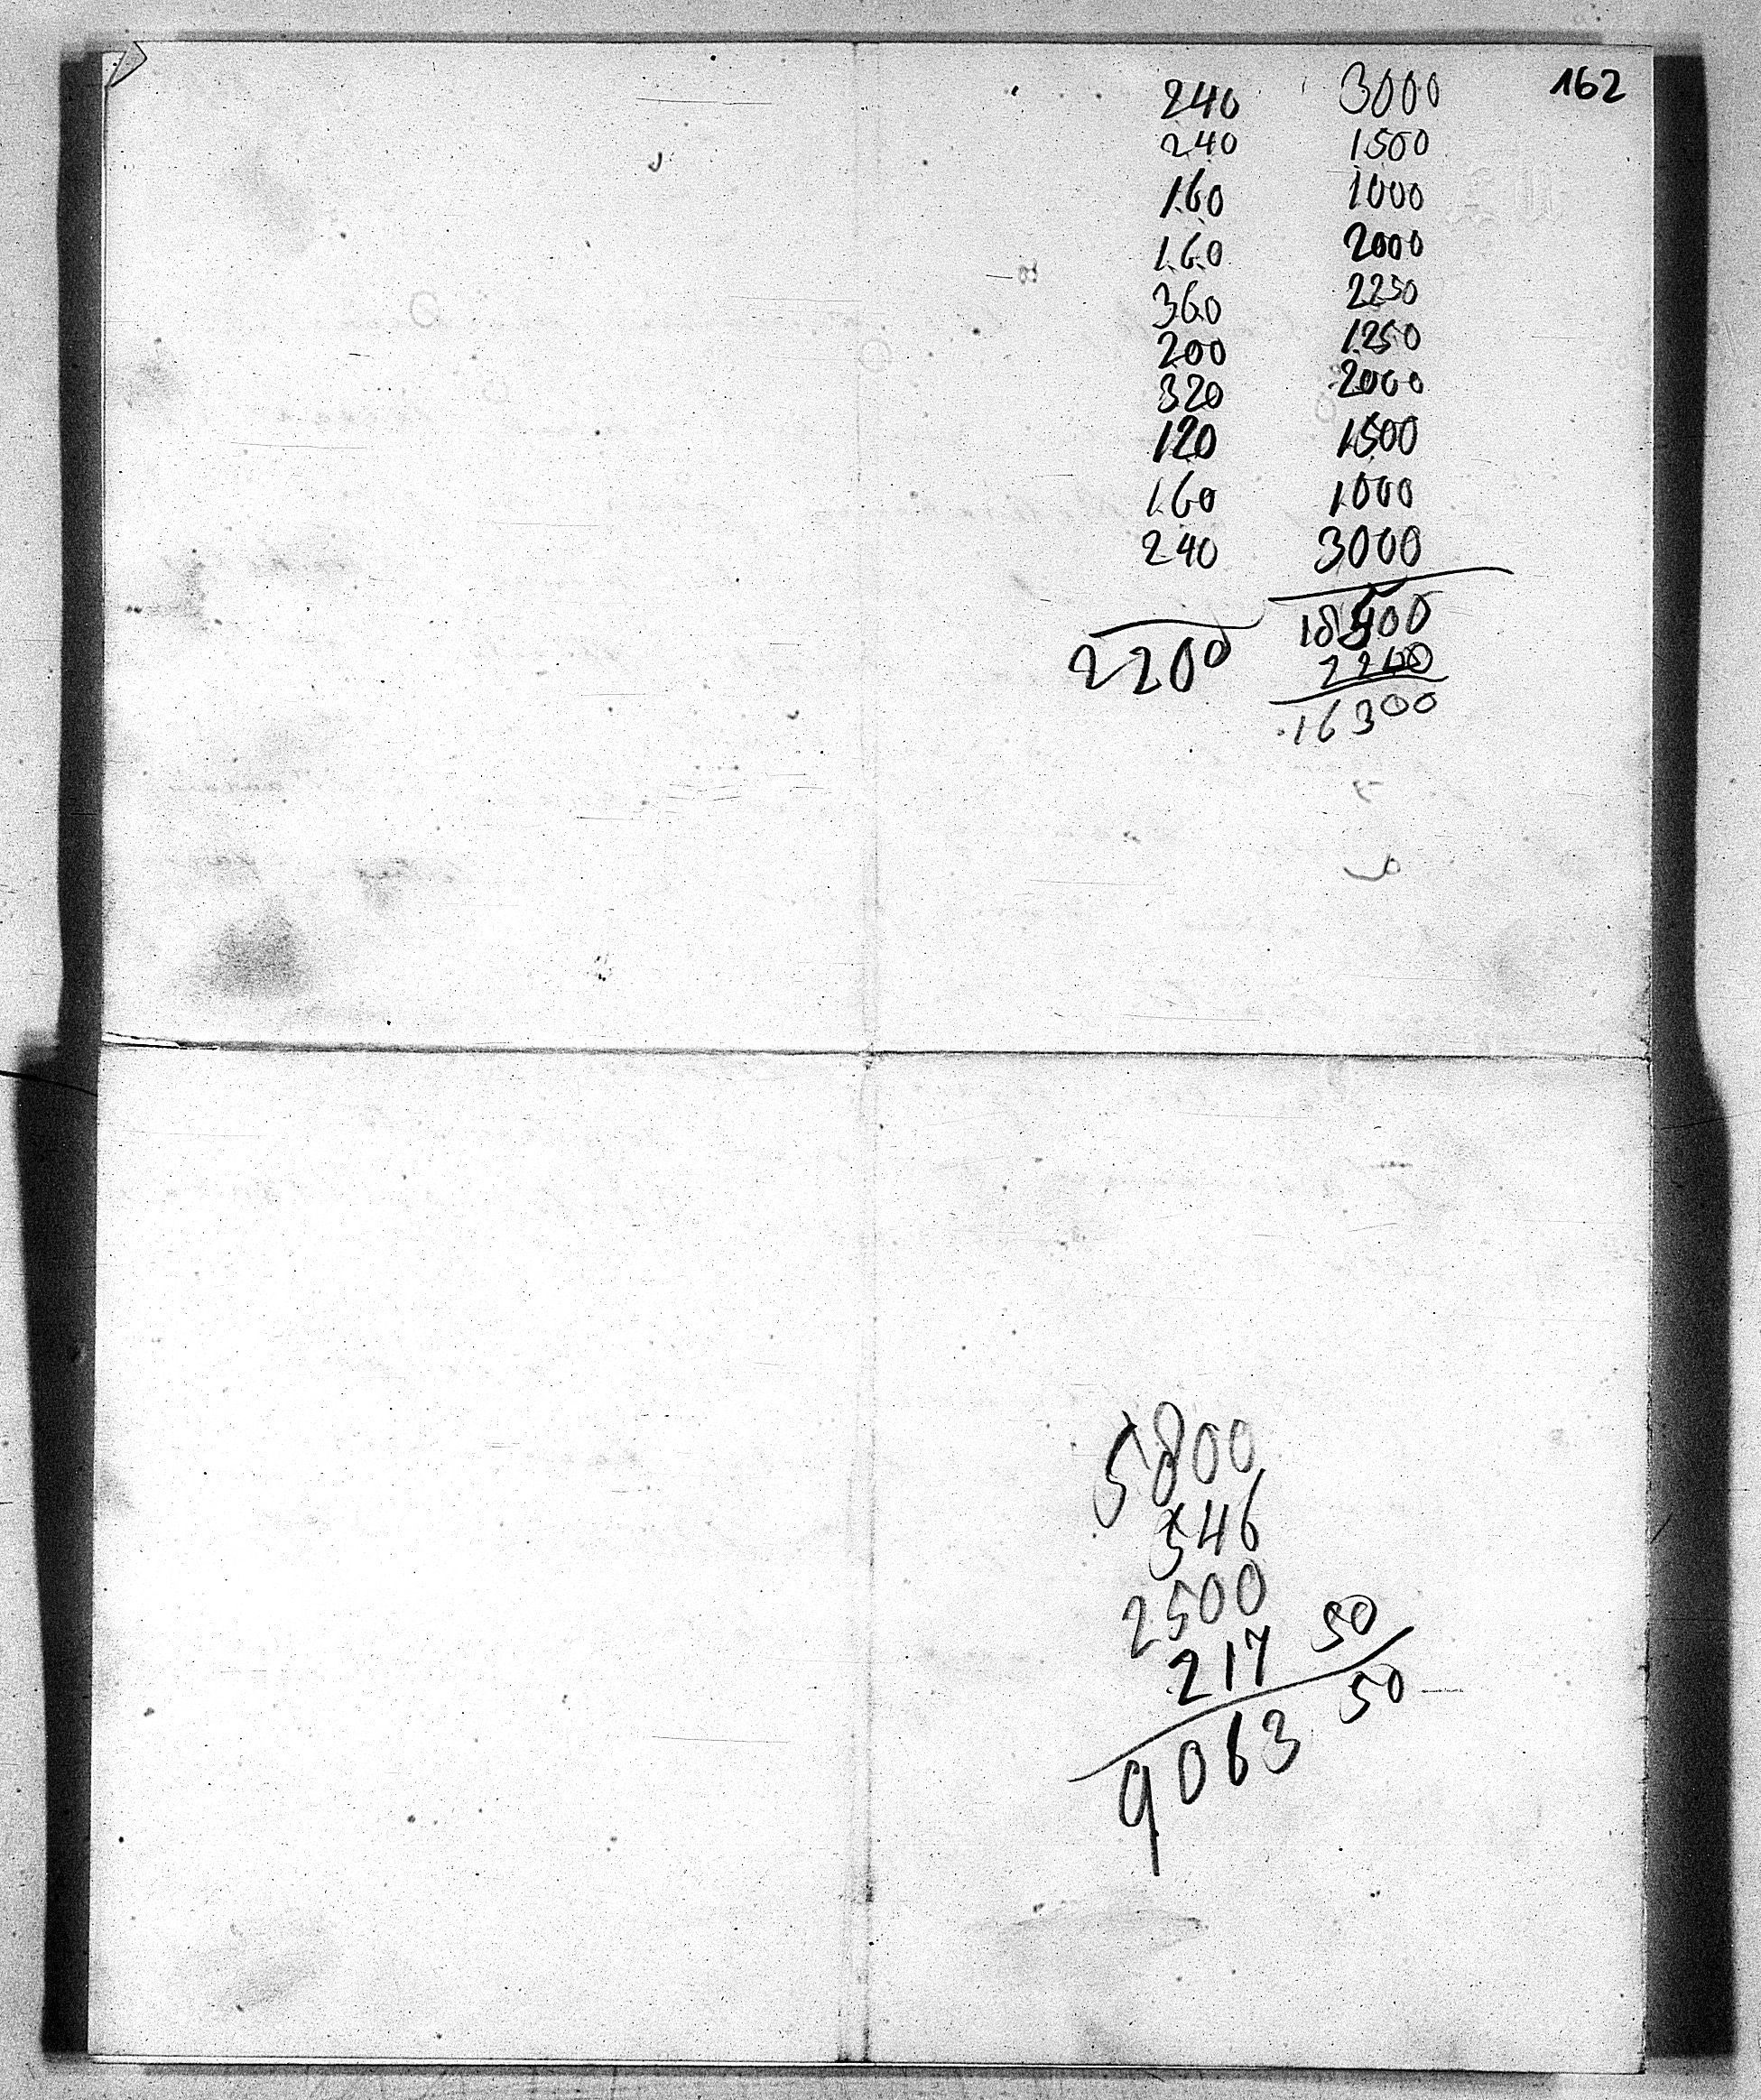 162
240 3000
240 1500
160 1000
160 2000
360 2250
200 1250
320 2000
120 1500
160 1000
240 3000
2200 18500
2200
16300
5800
546
2500
217 50
9063 50